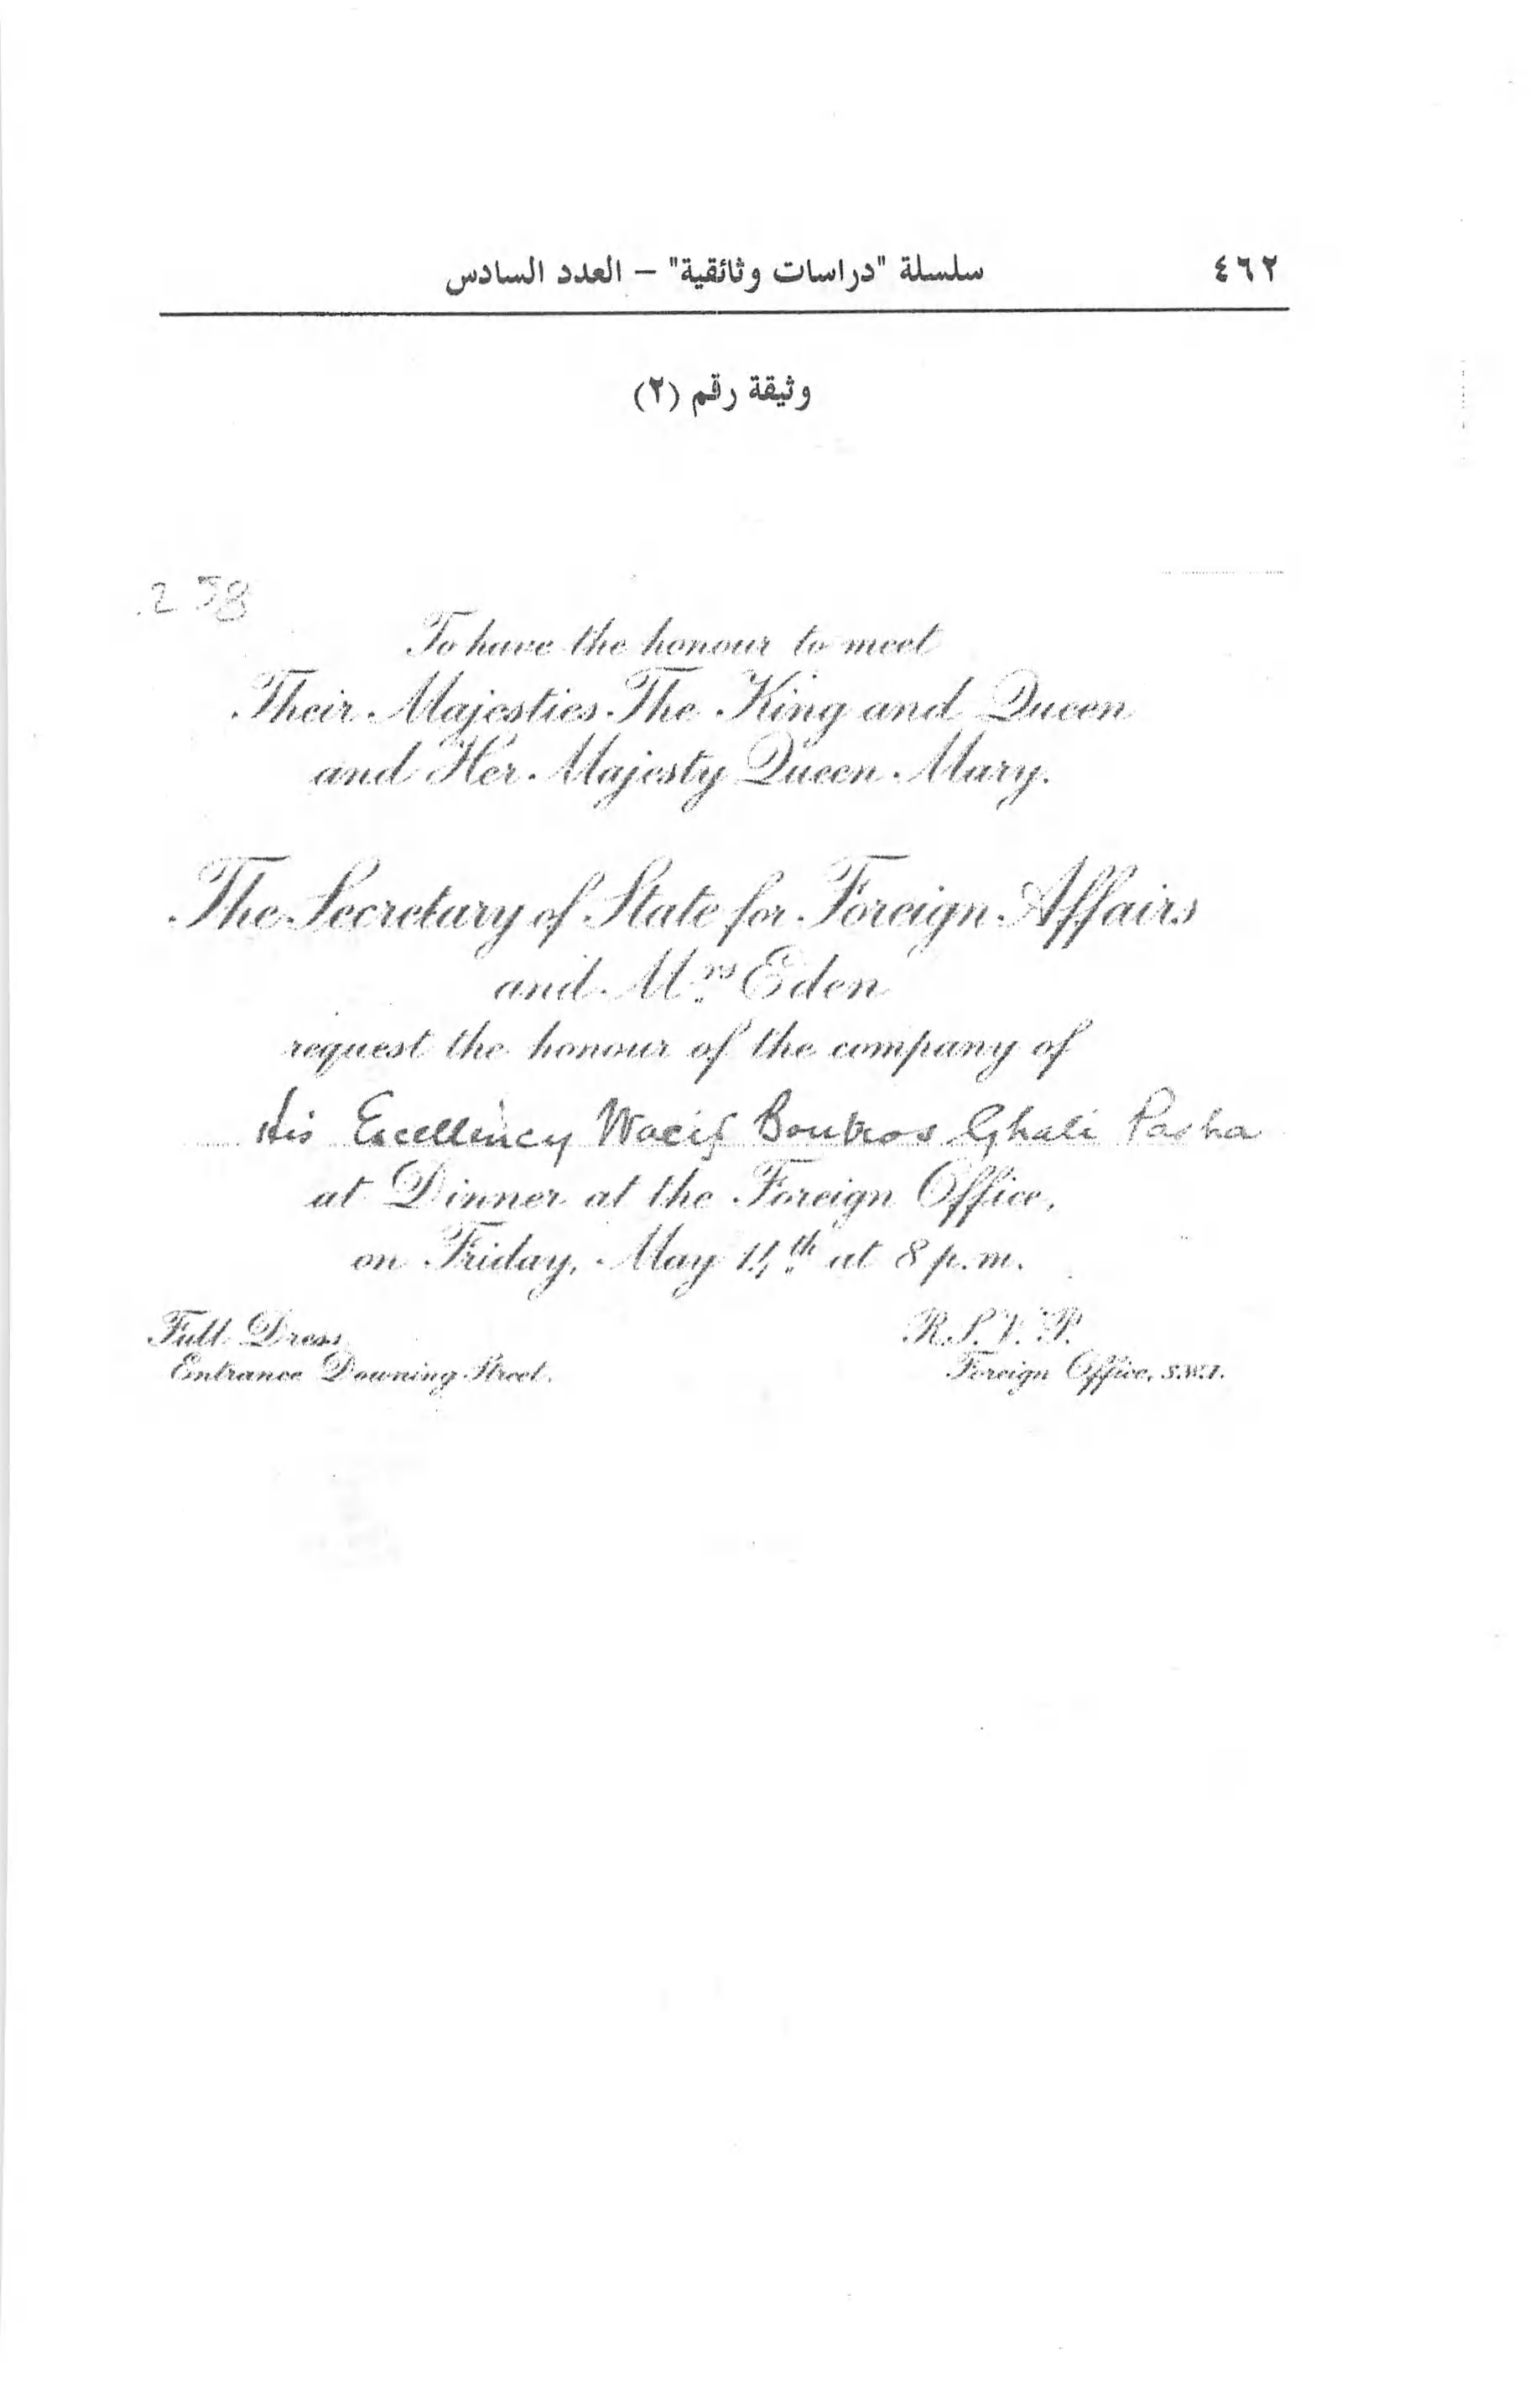 ٤٦٢ سلسلة "دراسات وثائقية" – العدد السادس
وثيقة رقم (٢)
238
To have the honour to meet
Their Majesties The King and Queen
and Her Majesty Queen Mary.
The Secretary of State for Foreign Affairs
and Mrs Eden
request the honour of the company of
His Excellency Wacif Boutros Ghali Pasha
at Dinner at the Foreign Office,
on Friday, May 14th at 8 p.m.
Full Dress R.S.V.P.
Entrance Downing Street. Foreign Office, S.W.1.